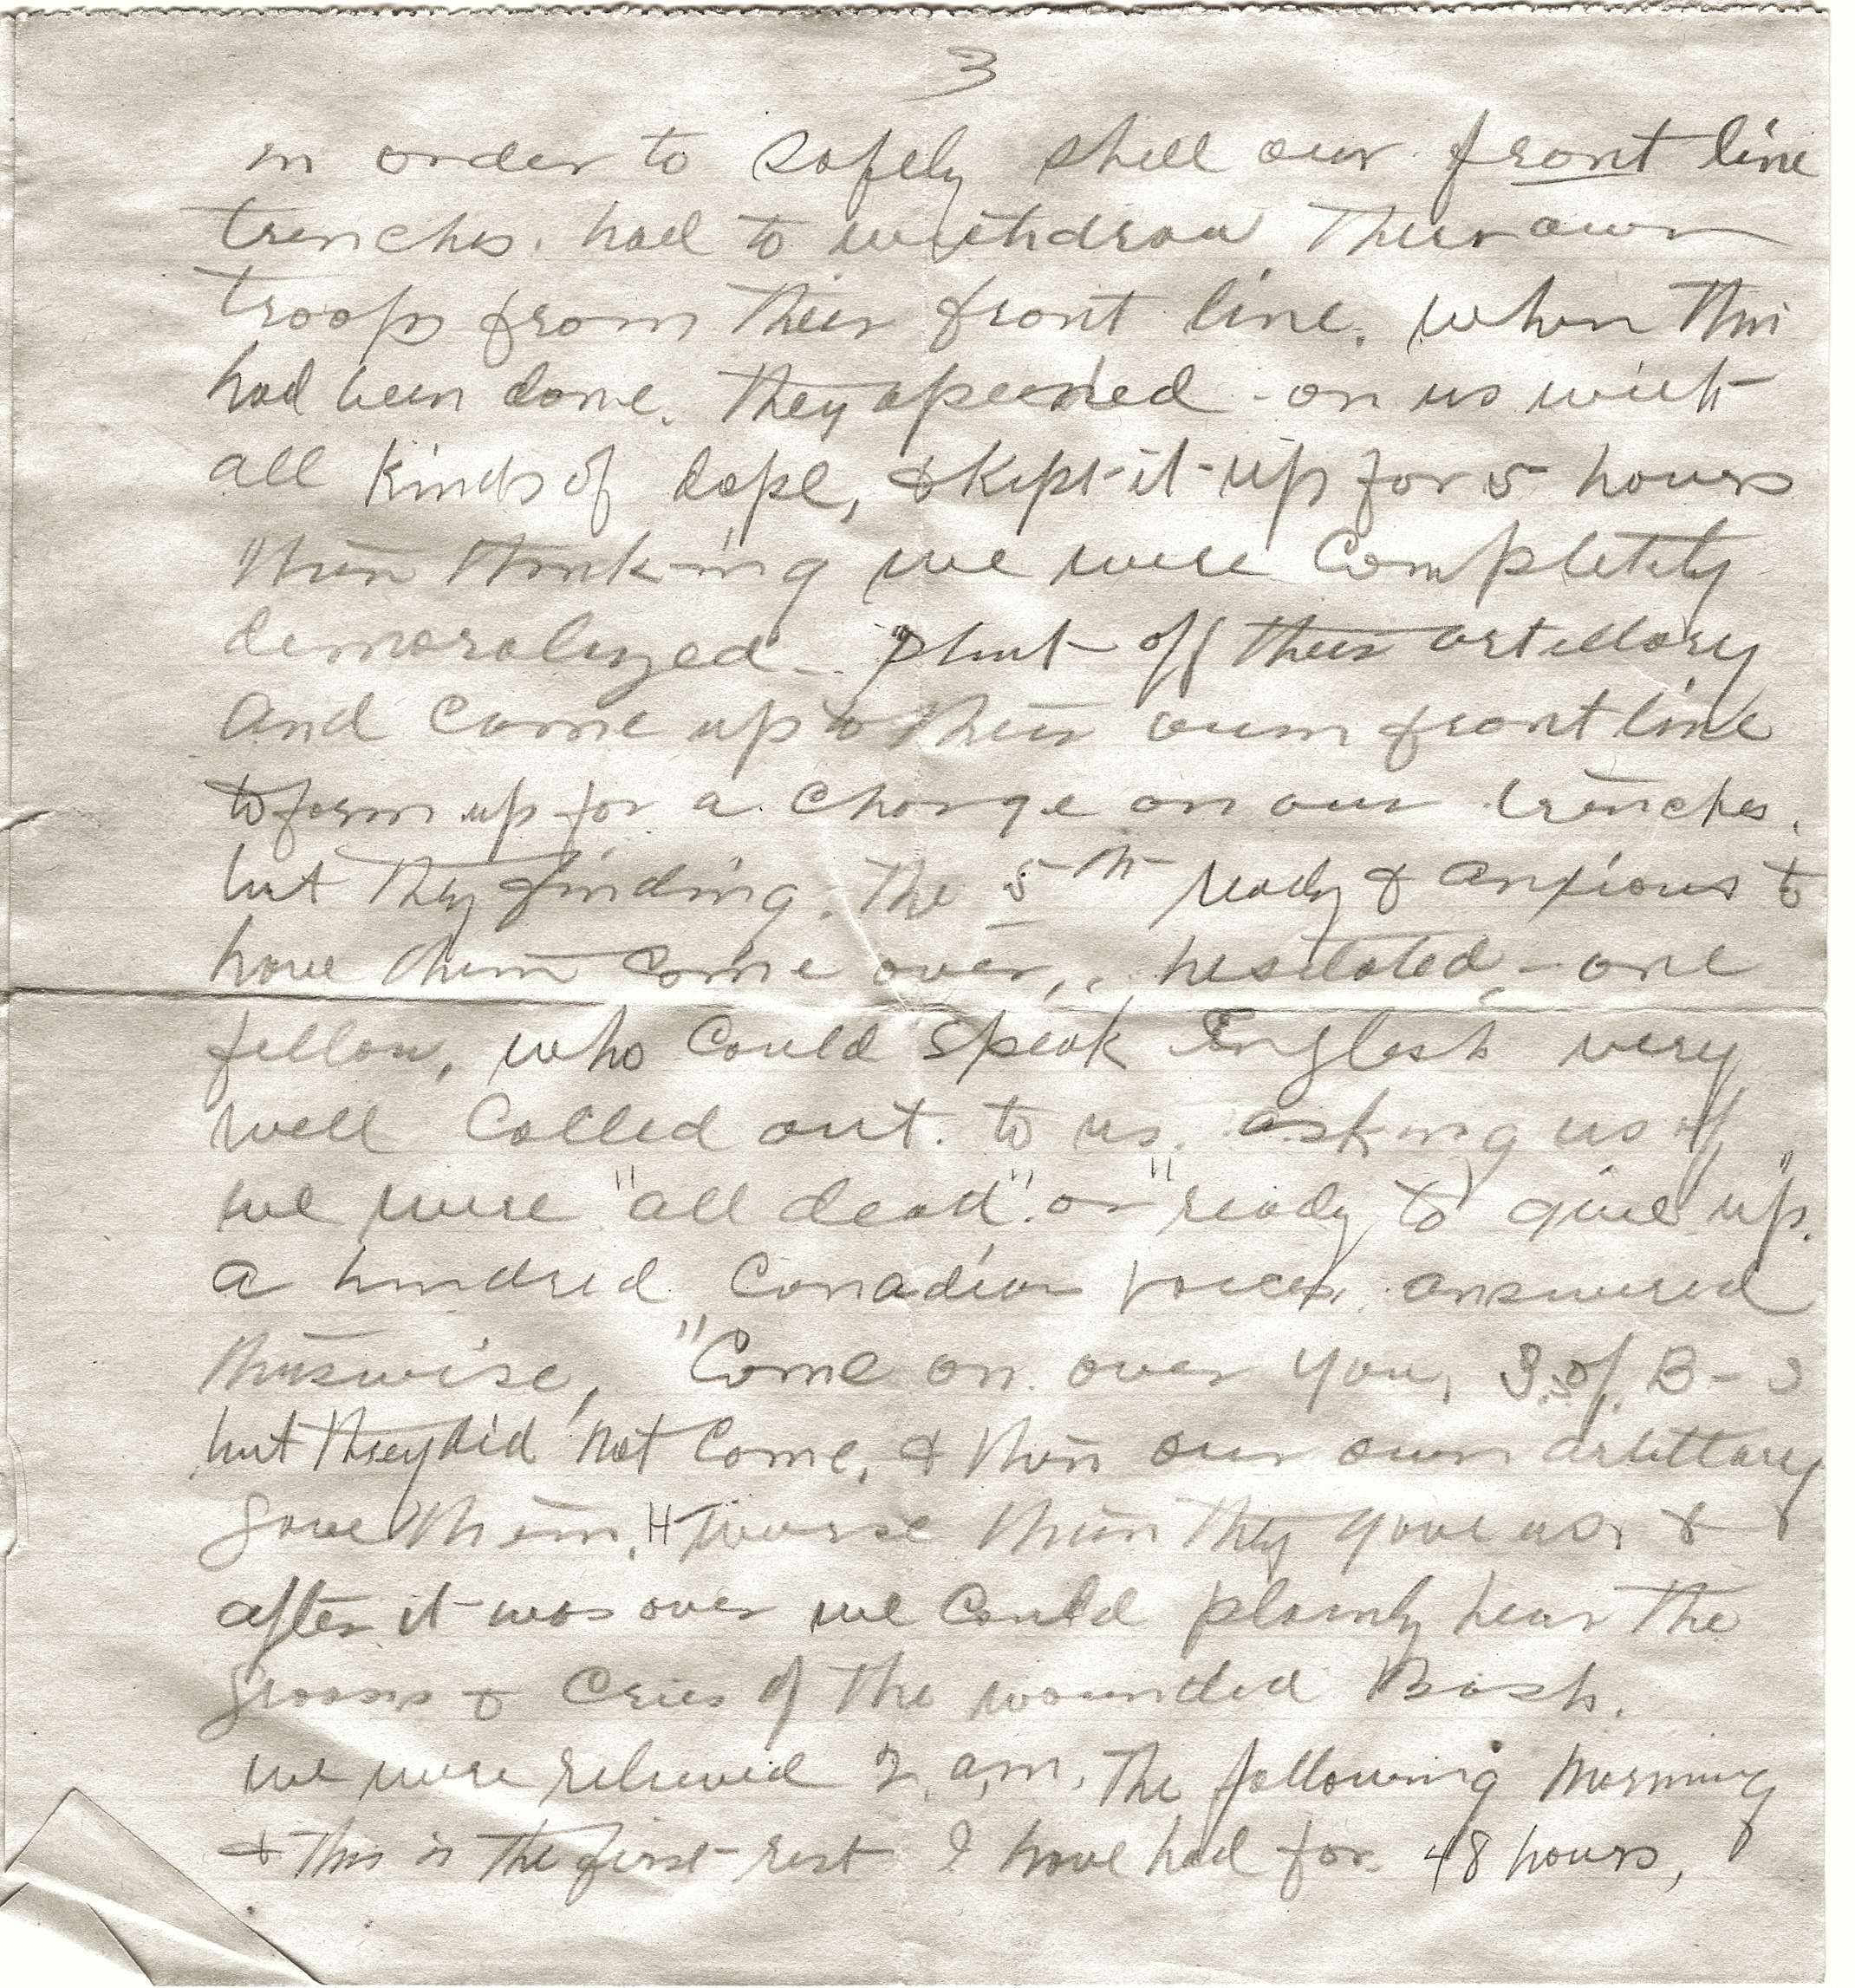 3
in order to safely shell our front line
trenches. had to withdraw their own
troops from their front line. when this
had been done. they opened - on us with
all kinds of dope, & kept-it-up for 5 hours
then thinking we were completely
demoralized - shut off their artillery
and come up to their own front line
to form up for a charge on our trenches.
but they finding. the 5th ready & anxious to
have them come over, hesitated, - one
fellow, who could speak English very
well called out. to us. asking us if
we were "all dead". or "ready to give up."
a hundred Canadian voices, answered
thuswise, "Come on over you, S. of. B - s
but they did not come, & then our own artillary
gave them, H worse than they gave us, &
after it was over we could plainly hear the
groans & cries of the wounded Bosh.
we were relieved 2. a.m. the following morning
& this is the first rest I have had for. 48 hours,